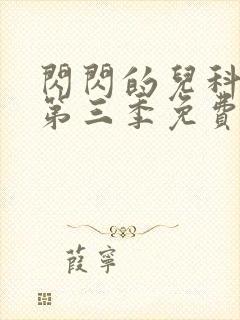 閃閃的兒科
第三季免費
葭寧